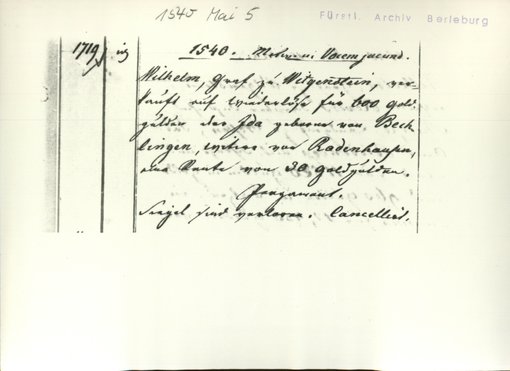 1540 Mai 5
Fürstl. Archiv Berleburg
1719
1540. Vocem jucund.
Wilhelm, Graf zu Witgenstein, ver-
kauft auf Wiederlöse für 600 gold-
gülden der Ida geborne von Bech-
lingen, witwe von Radenhausen,
eine Rente von 30 goldgülden.
Pergament.
Siegel sind verloren. Cancellirt.